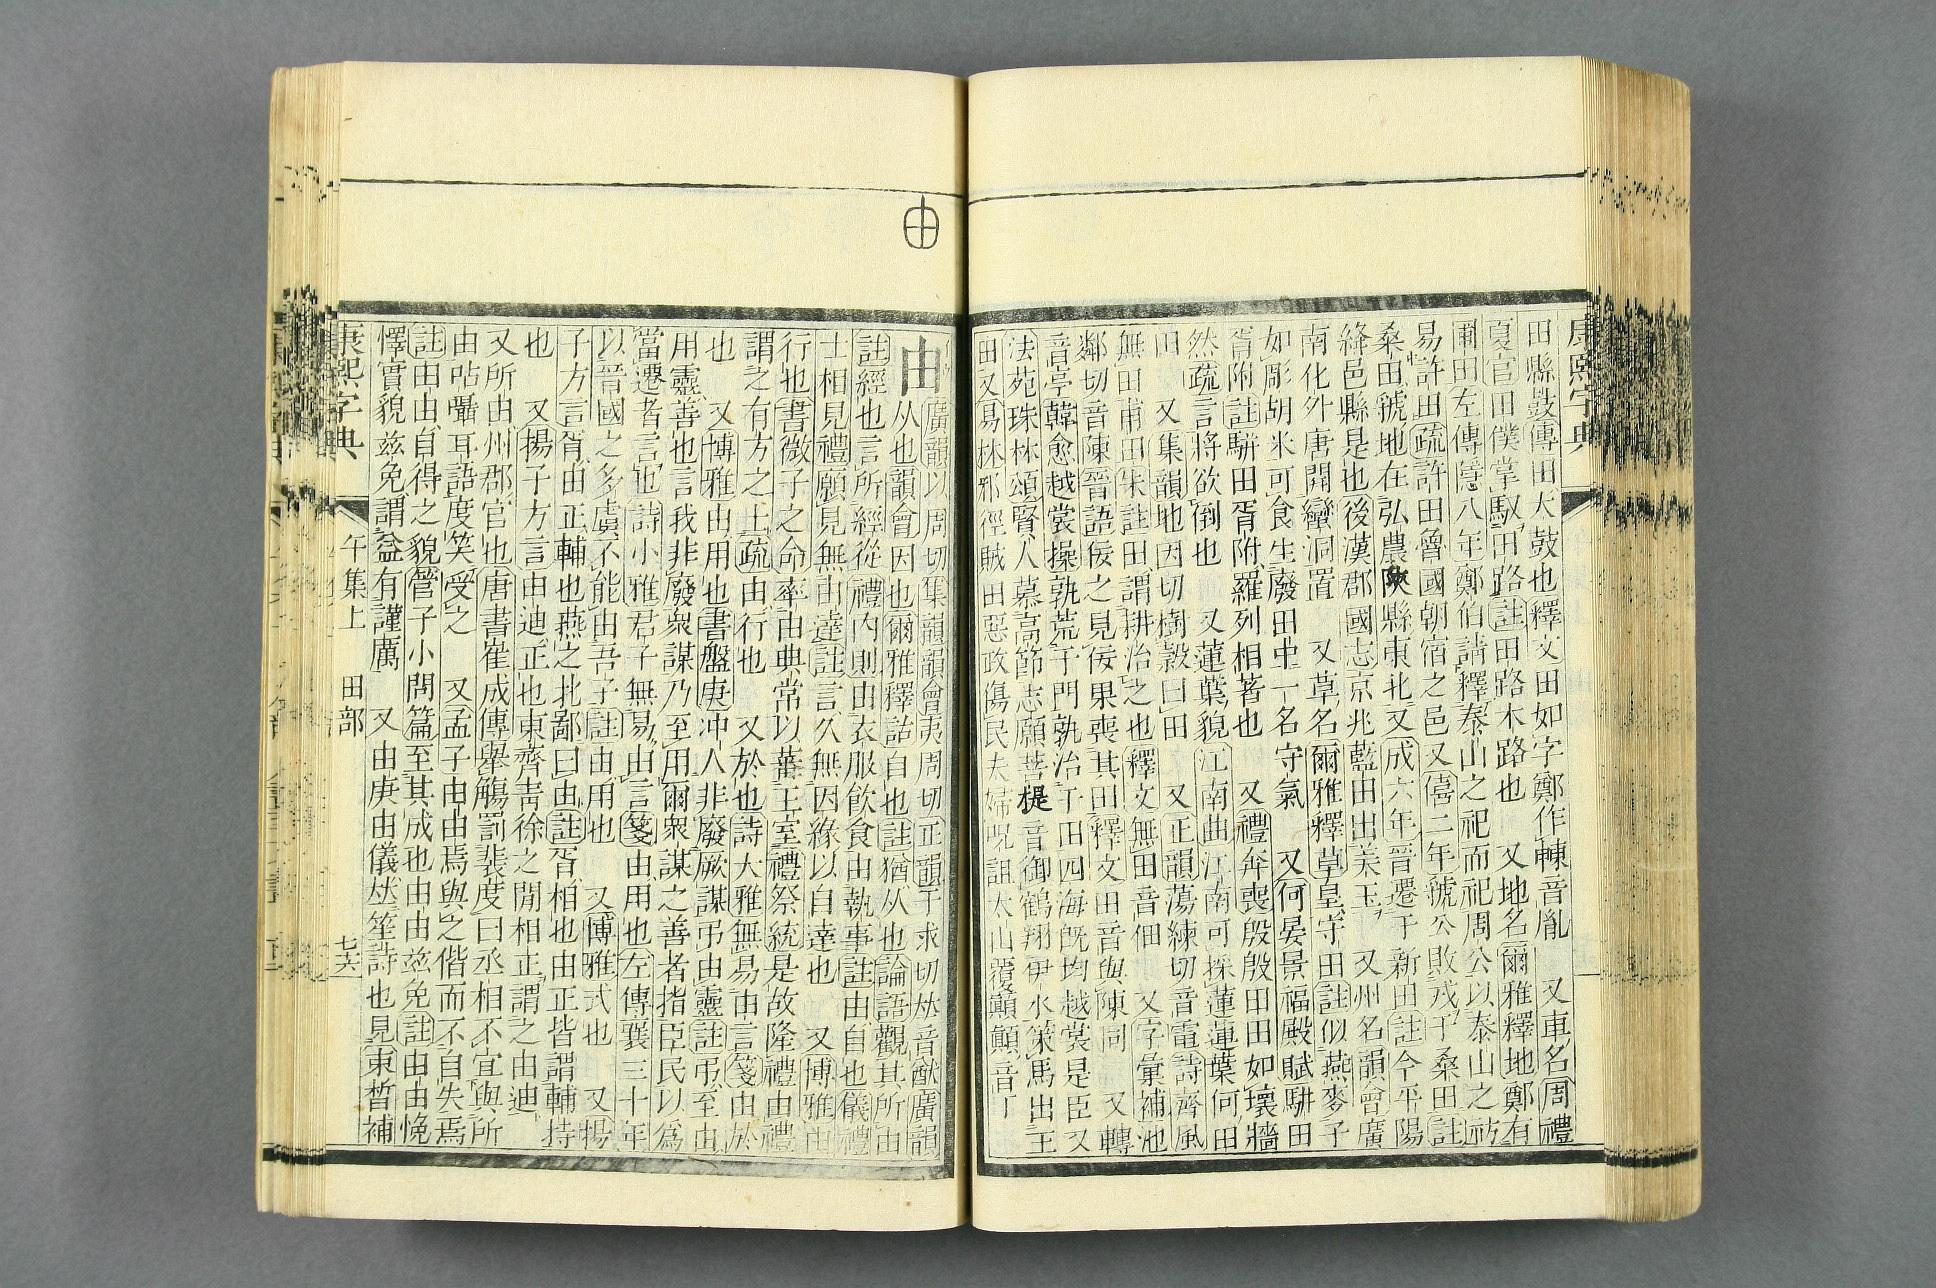 康熙字典
田縣鼓傳田大鼓也釋文田如字鄭作朄音胤　又車名周禮
夏官田僕掌馭田路註田路木路也　又地名爾雅釋地鄭有
圃田左傳隱八年鄭伯請釋泰山之祀而祀周公以泰山之祊
易許田疏許田魯國朝宿之邑又僖二年虢公敗戎于桑田註
桑田虢地在弘農陝縣東北又成六年晉遷于新田註今平陽
絳邑縣是也後漢郡國志京兆藍田出美玉　又州名韻會廣
南化外唐開蠻洞置　又草名爾雅釋草皇守田註似燕麥子
如彫胡米可食生廢田中一名守氣　又何晏景福殿賦駢田
胥附註駢田胥附羅列相著也　又禮奔喪殷殷田田如壞牆
然疏言將欲倒也　又蓮葉貌江南曲江南可採蓮蓮葉何田
田　又集韻地因切樹穀曰田　又正韻蕩練切音電詩齊風
無田甫田朱註田謂耕治之也釋文無田音佃　又字彙補池
鄰切音陳晉語佞之見佞果喪其田釋文田音與陳同　又轉
音亭韓愈越裳操孰荒于門孰治于田四海旣均越裳是臣又
法苑珠林頌賢人慕高節志願菩提音御鶴翔伊水策馬出王
田又易林邪徑賊田惡政傷民夫婦呪詛太山覆顚顚音丁
由
由　廣韻以周切集韻韻會夷周切正韻于求切𠀤音猷廣韻
从也韻會因也爾雅釋詁自也註猶从也論語觀其所由
註經也言所經從禮內則由衣服飮食由執事註由自也儀禮
士相見禮願見無由達註言久無因緣以自達也　又博雅由
行也書微子之命率由典常以蕃王室禮祭統是故隆禮由禮
謂之有方之士疏由行也　又於也詩大雅無易由言箋由於
也　又博雅由用也書盤庚沖人非廢厥謀弔由靈註弔至由
用靈善也言我非廢衆謀乃至用爾衆謀之善者指臣民以爲
當遷者言也詩小雅君子無易由言箋由用也左傳襄三十年
以晉國之多虞不能由吾子註由用也　又博雅式也　又揚
子方言胥由正輔也燕之北鄙曰由註胥相也由正皆謂輔持
也　又揚子方言由迪正也東齊靑徐之閒相正謂之由迪
又所由州郡官也唐書崔成傳舉觴罰裴度曰丞相不宜與所
由呫囁耳語度笑受之　又孟子由由焉與之偕而不自失焉
註由由自得之貌管子小問篇至其成也由由茲免註由由悅
懌實貌茲免謂益有謹厲　又由庚由儀𠀤笙詩也見束皙補
康熙字典　午集上　田部　七六